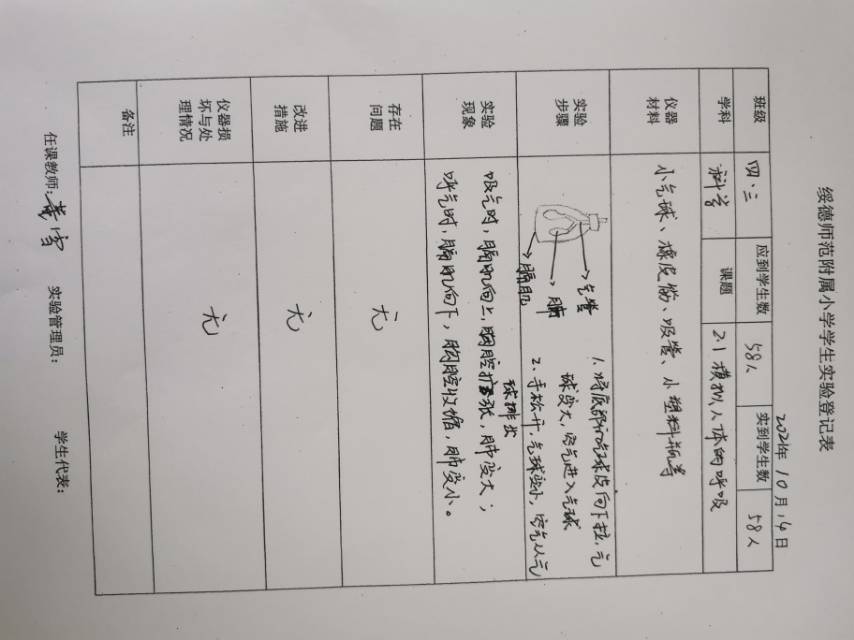 绥德师范附属小学学生实验登记表
2021年10月14日
班级 四.三 应到学生数 58人 实到学生数 58人
学科 科学 课题 2.1模拟人体的呼吸
仪器材料 小气球、橡皮筋、吸管、小塑料瓶等
实验步骤
气管
肺
膈肌
1.将底部的气球皮向下拉,气
球变大,空气进入气球
2.手松开,气球变小,空气从气
球排出
实验现象
吸气时,膈肌向上,胸腔扩张,肺变大;
呼气时,膈肌向下,胸腔收缩,肺变小。
存在问题 无
改进措施 无
仪器损坏与处理情况 无
备注
任课教师: 实验管理员: 学生代表: